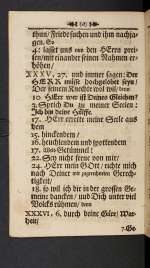 thun / Friede suchen und ihm nachja-
gen. Ez
4: lasset uns mit den HErrn prei-
sen / mit einander seinen Nahmen er-
höhen /
XXXV, 27. und immer sagen: Der
HERR müsse hochgelobet seyn /
Der seinem Knechte wol will
10. HErr wer ist Deines Gleichen?
3. Sprich Du zu meiner Seelen:
Ich bin deine Hülffe.
17. HErr errette meine Seele aus
dem
15. hinckendem /
16. heuchlendem und spottendem
17. Getümmel!
22. Sey nicht ferne von mir /
24. HErr mein GOtt / richte mich
nach Deiner mit Gerech-
tigkeit /
18. so wil ich dir in der grossen Ge-
meine dancken / und Dich unter viel
Volcks rühmen /
XXXVI, 6. durch deine Güte / War-
heit /
7. Ge-